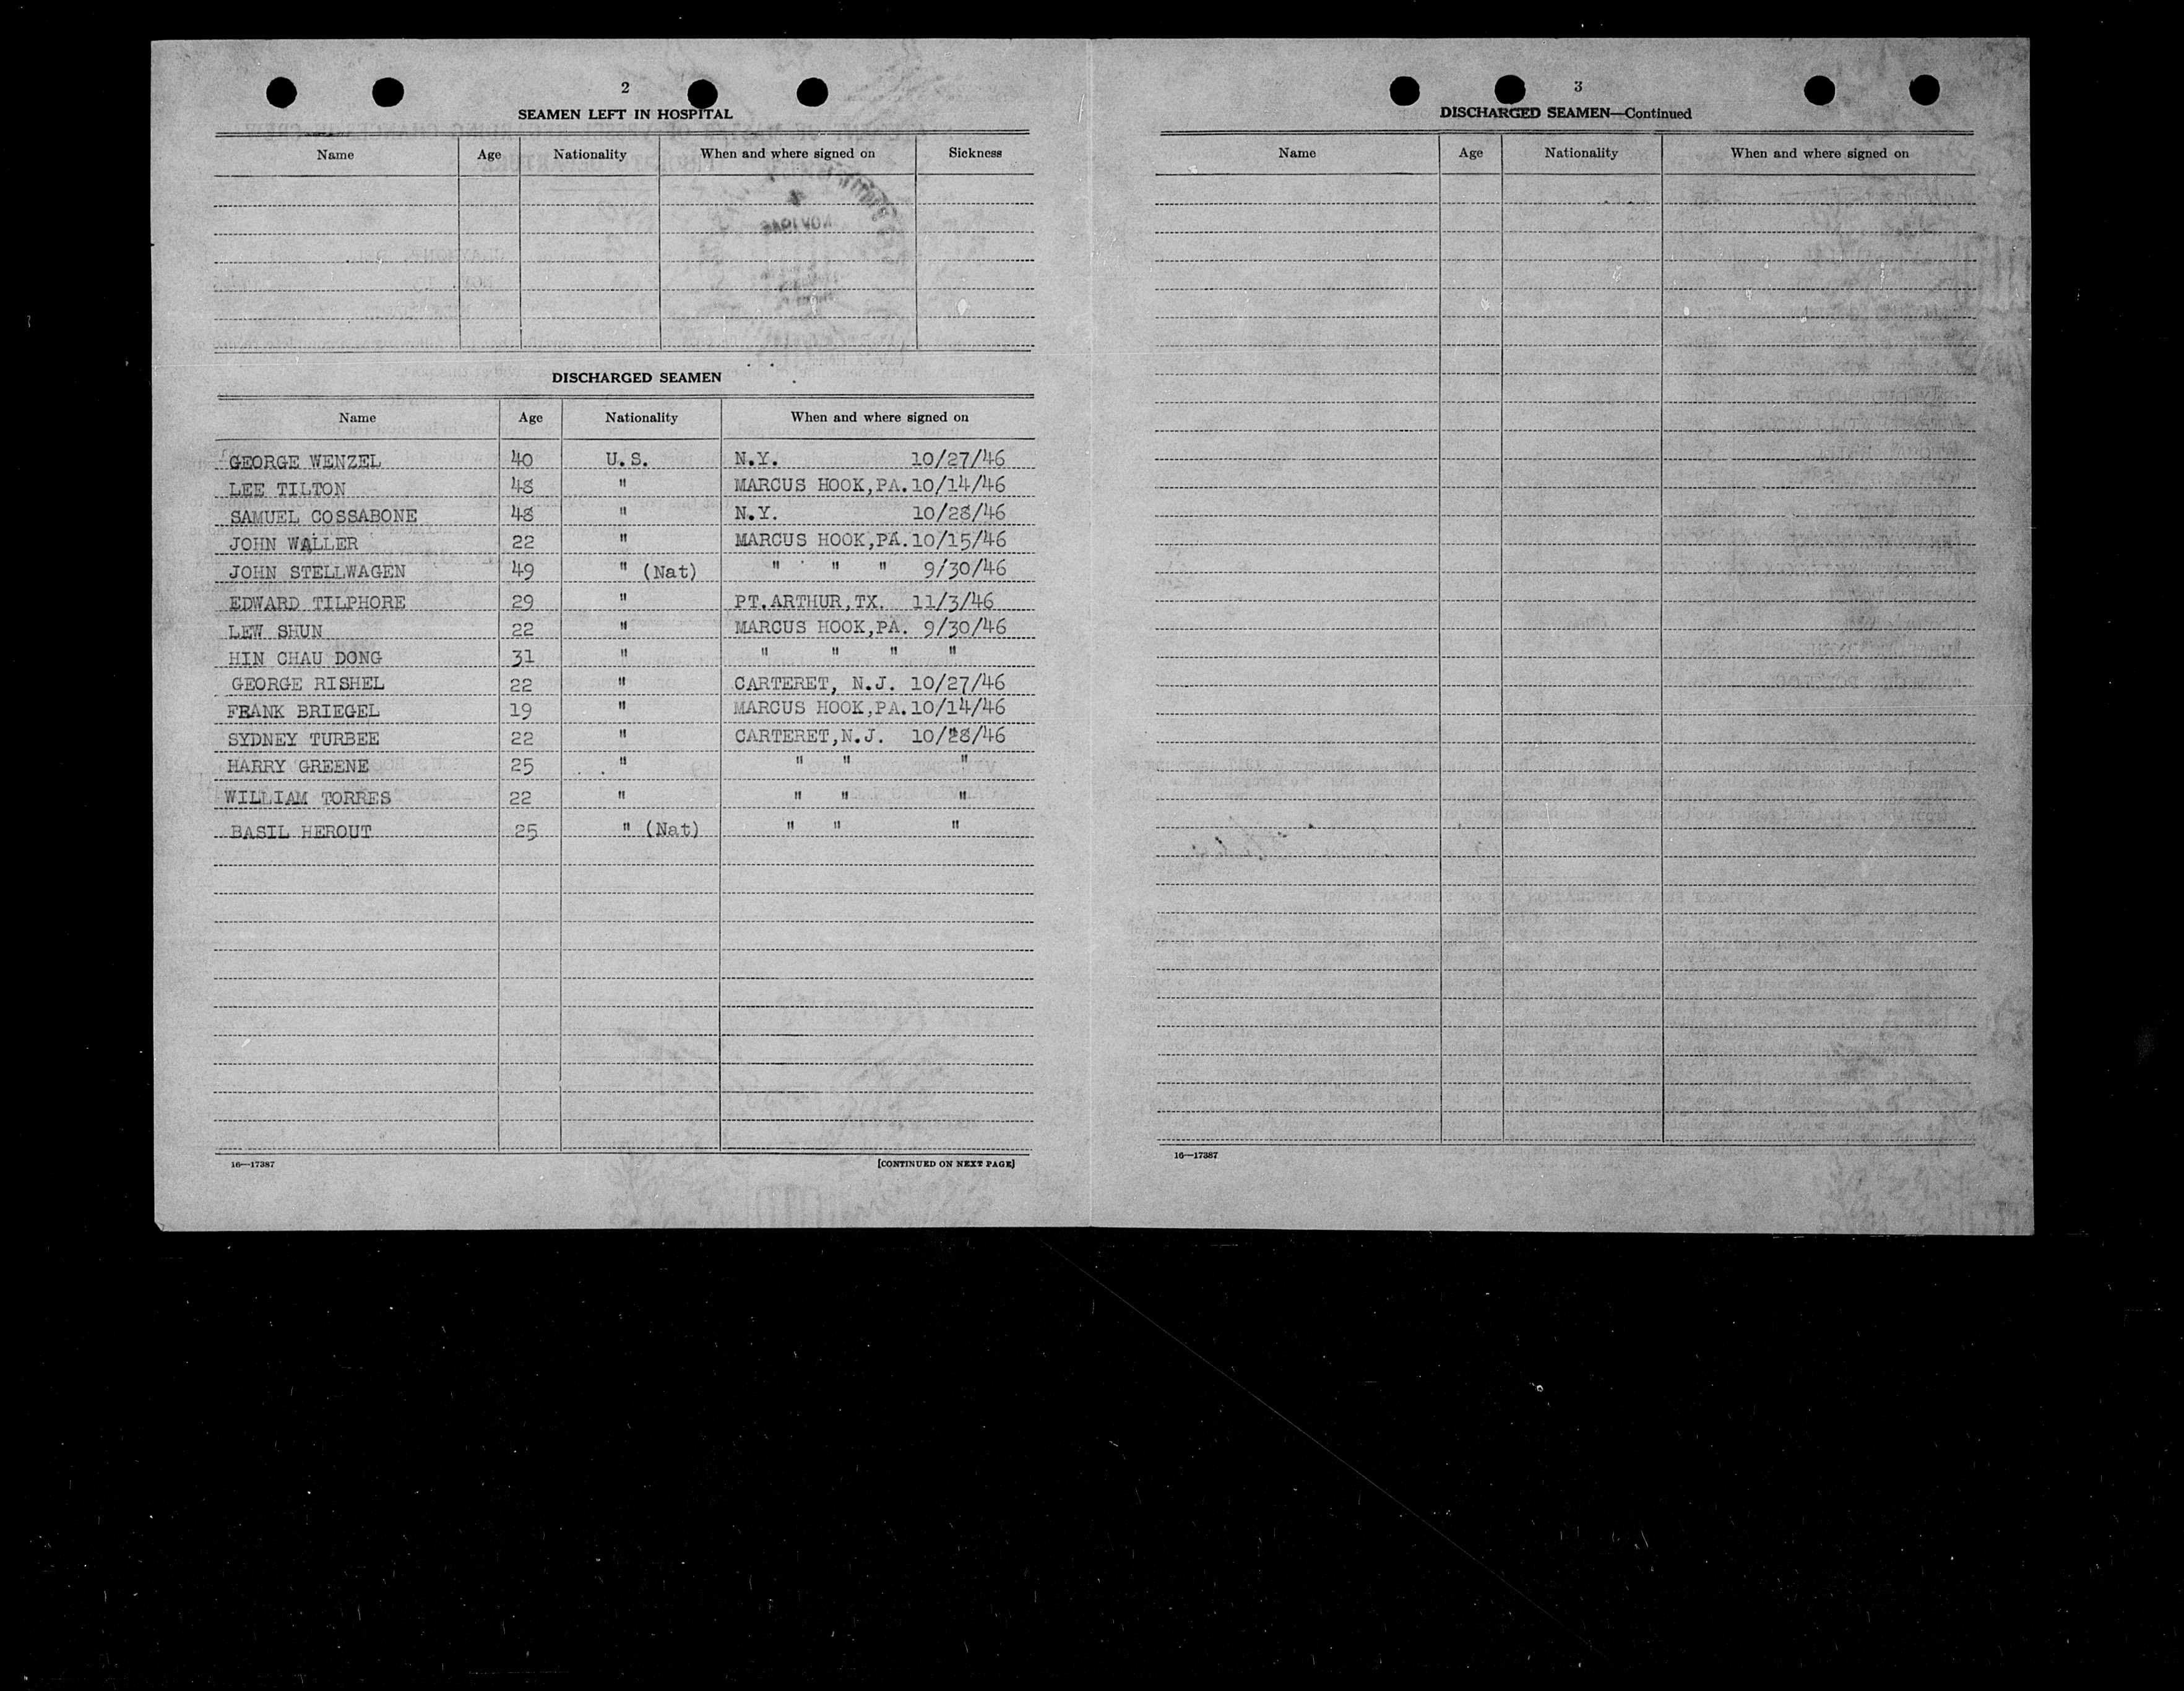 2
SEAMEN LEFT IN HOSPITAL
Name Age Nationality When and where signed on Sickness
DISCHARGED SEAMEN
Name Age Nationality When and where signed on
GEORGE WENZEL 40 U.S. N.Y. 10/27/46
LEE TILTON 48 " MARCUS HOOK,PA. 10/14/46
SAMUEL COSSABONE 48 " N.Y. 10/28/46
JOHN WALLER 22 " MARCUS HOOK,PA. 10/15/46
JOHN STELLWAGEN 49 " (Nat) " " " 9/30/46
EDWARD TILPHORE 29 " PT.ARTHUR,TX. 11/3/46
LEW SHUN 22 " MARCUS HOOK,PA. 9/30/46
HIN CHAU DONG 31 " " " " "
GEORGE RISHEL 22 " CARTERET, N.J. 10/27/46
FRANK BRIEGEL 19 " MARCUS HOOK,PA. 10/14/46
SYDNEY TURBEE 22 " CARTERET,N.J. 10/28/46
HARRY GREENE 25 " " " "
WILLIAM TORRES 22 " " " "
BASIL HEROUT 25 " (Nat) " " "
16—17387 [CONTINUED ON NEXT PAGE]
3
DISCHARGED SEAMEN—Continued
Name Age Nationality When and where signed on
16—17387